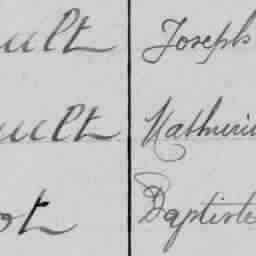 ult Joseph
uult Mathuri
ot Baptiste